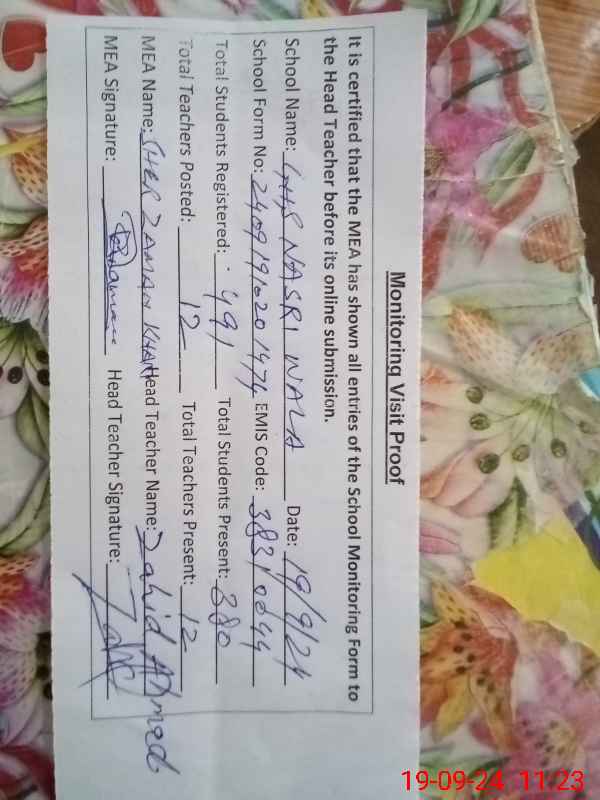 Monitoring Visit Proof
It is certified that the MEA has shown all entries of the School Monitoring Form to
the Head Teacher before its online submission.
School Name: GHS NASRI WALA Date: 19/9/24
School Form No: EMIS Code:
Total Students Registered: 491 Total Students Present: 380
Total Teachers Posted: 12 Total Teachers Present: 12
MEA Name: SHER ZAMAN KHAN Head Teacher Name: Zahid Ahmed
MEA Signature: Head Teacher Signature:
19-09-24 11:23